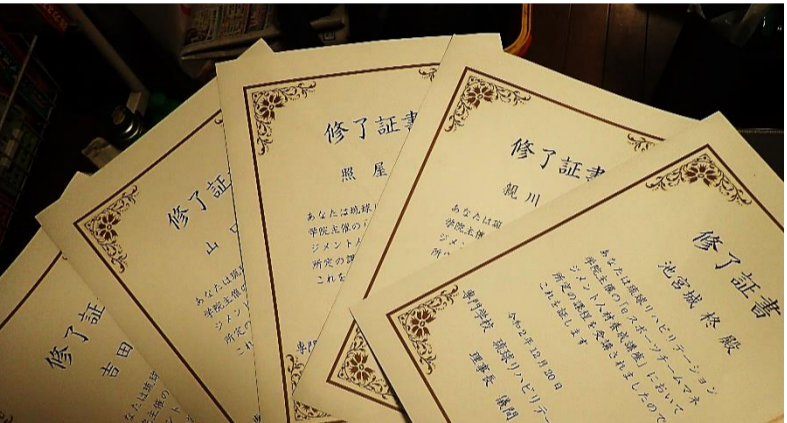 修了証
吉田
あなたは琉球
学院主催の
ジメント
所定
修了証
山口
あなたは琉
学院主催の
ジメント
所定の
これ
修了証書
照屋
あなたは琉球
学院主催の
ジメント人
所定の課
これを
専門
修了証書
親川
あなたは琉
学院主催
ジメン
所
修了証書
池宮城 柊 殿
あなたは琉球リハビリテーション
学院主催の「eスポーツチームマネ
ジメント人材養成講座」において
所定の課程を受講されましたので
これを証します
令和2年12月20日
専門学校 琉球リハビリテー
理事長 儀間